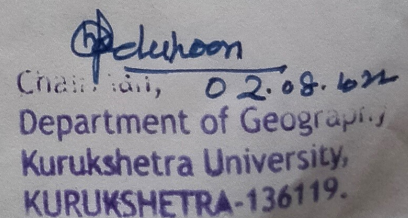 Chairman, 02.08.2022
Department of Geography
Kurukshetra University,
KURUKSHETRA-136119.